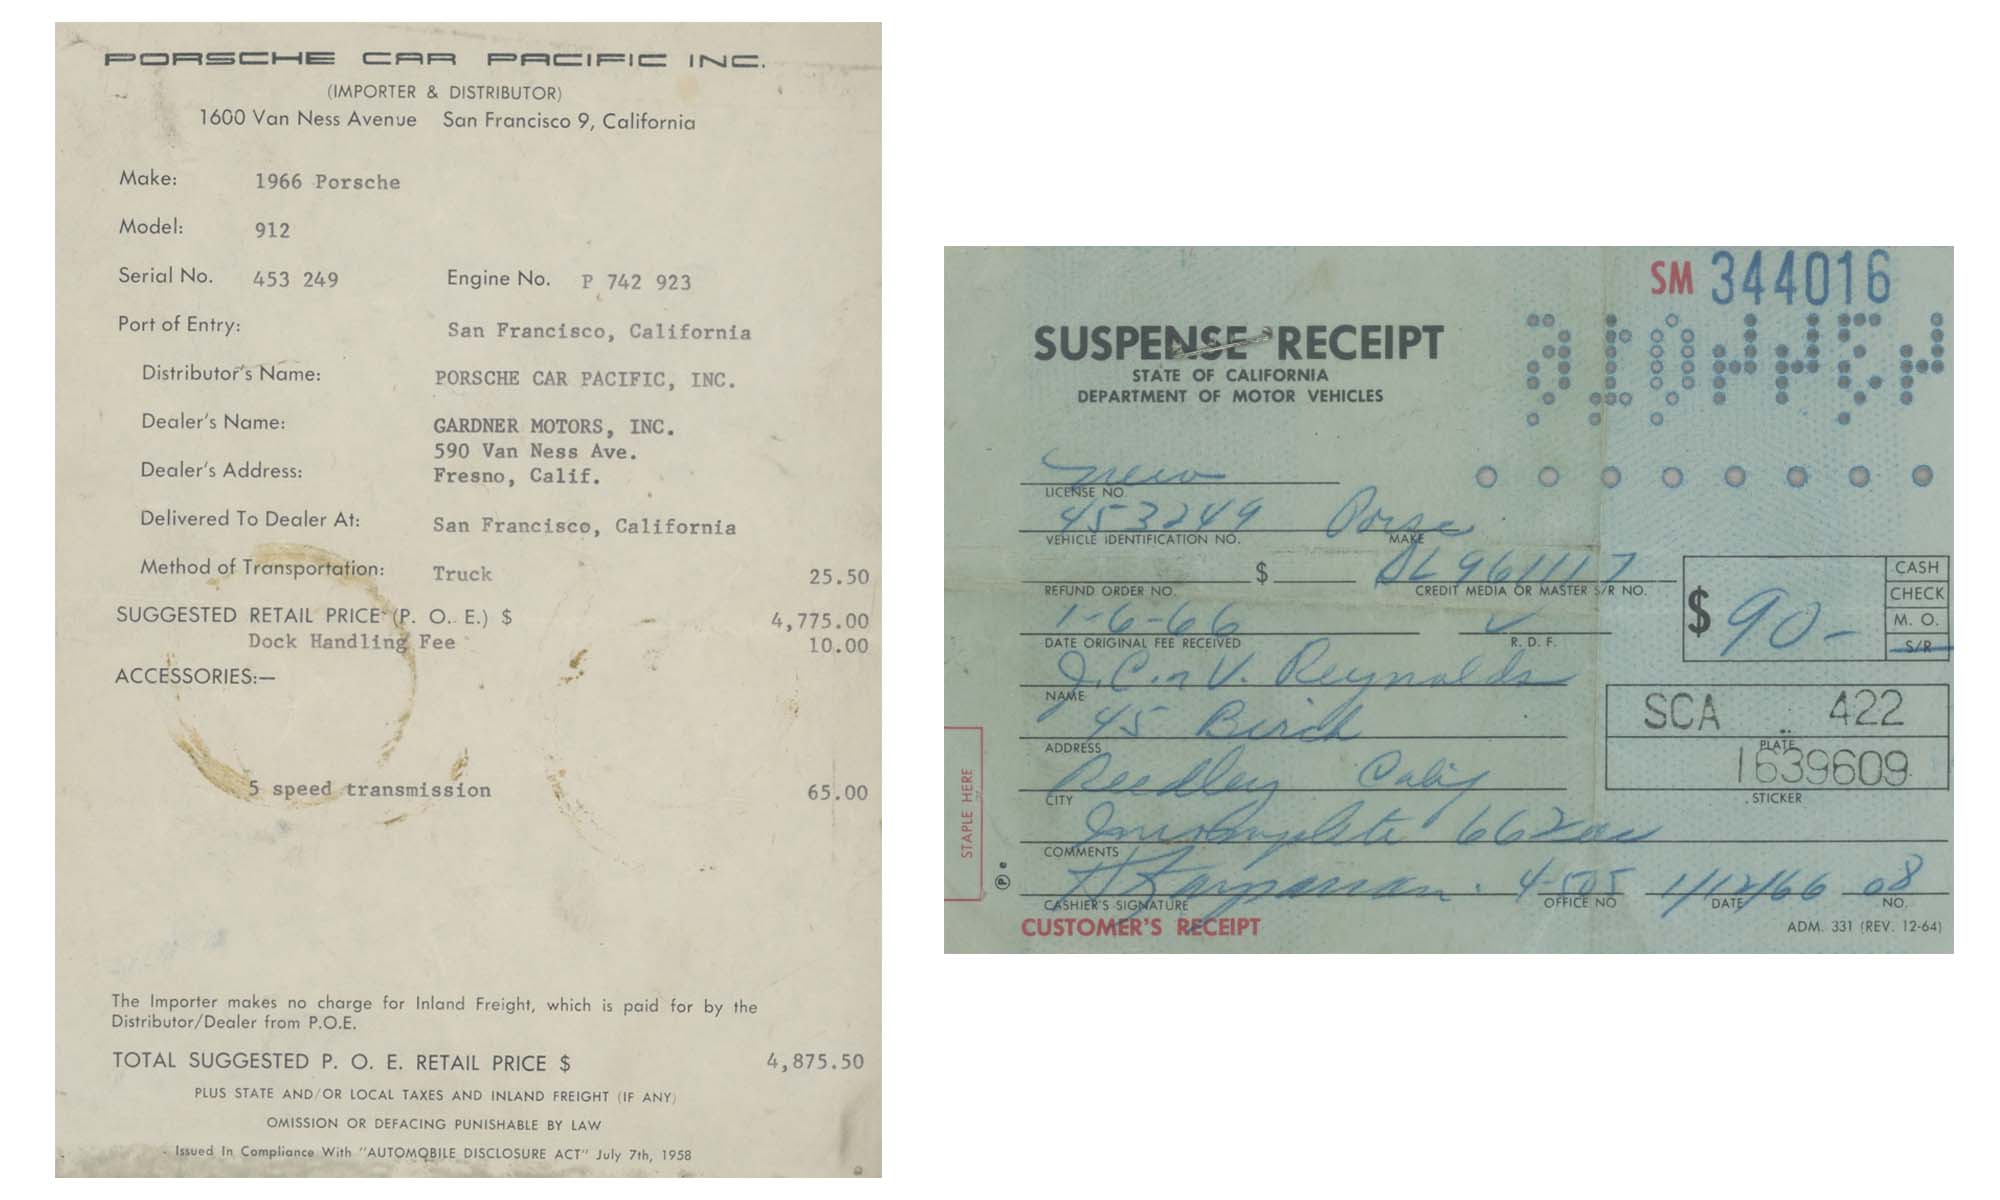 PORSCHE CAR PACIFIC INC.
(IMPORTER & DISTRIBUTOR)
1600 Van Ness Avenue San Francisco 9, California
Make: 1966 Porsche
Model: 912
Serial No. 453 249 Engine No. P 742 923
Port of Entry: San Francisco, California
Distributor's Name: PORSCHE CAR PACIFIC, INC.
Dealer's Name: GARDNER MOTORS, INC.
590 Van Ness Ave.
Dealer's Address: Fresno, Calif.
Delivered To Dealer At: San Francisco, California
Method of Transportation: Truck 25.50
SUGGESTED RETAIL PRICE (P. O. E.) $ 4,775.00
Dock Handling Fee 10.00
ACCESSORIES:—
5 speed transmission 65.00
The Importer makes no charge for Inland Freight, which is paid for by the
Distributor/Dealer from P.O.E.
TOTAL SUGGESTED P. O. E. RETAIL PRICE $ 4,875.50
PLUS STATE AND/OR LOCAL TAXES AND INLAND FREIGHT (IF ANY)
OMISSION OR DEFACING PUNISHABLE BY LAW
Issued In Compliance With "AUTOMOBILE DISCLOSURE ACT" July 7th, 1958
SM 344016
SUSPENSE RECEIPT
STATE OF CALIFORNIA
DEPARTMENT OF MOTOR VEHICLES
new
LICENSE NO.
453249 Porsc
VEHICLE IDENTIFICATION NO. MAKE
$
REFUND ORDER NO. CREDIT MEDIA OR MASTER S/R NO.
1-6-66
DATE ORIGINAL FEE RECEIVED R. D. F.
$ 90-
CASH
CHECK
M. O.
S/R
J.C. V. Reynolds
NAME
45 Birch
ADDRESS
Reedley Calif
CITY
SCA 422
PLATE
1639609
STICKER
Incomplete
COMMENTS
4-505 1/12/66 08
CASHIER'S SIGNATURE OFFICE NO DATE NO.
CUSTOMER'S RECEIPT
ADM. 331 (REV. 12-64)
STAPLE HERE